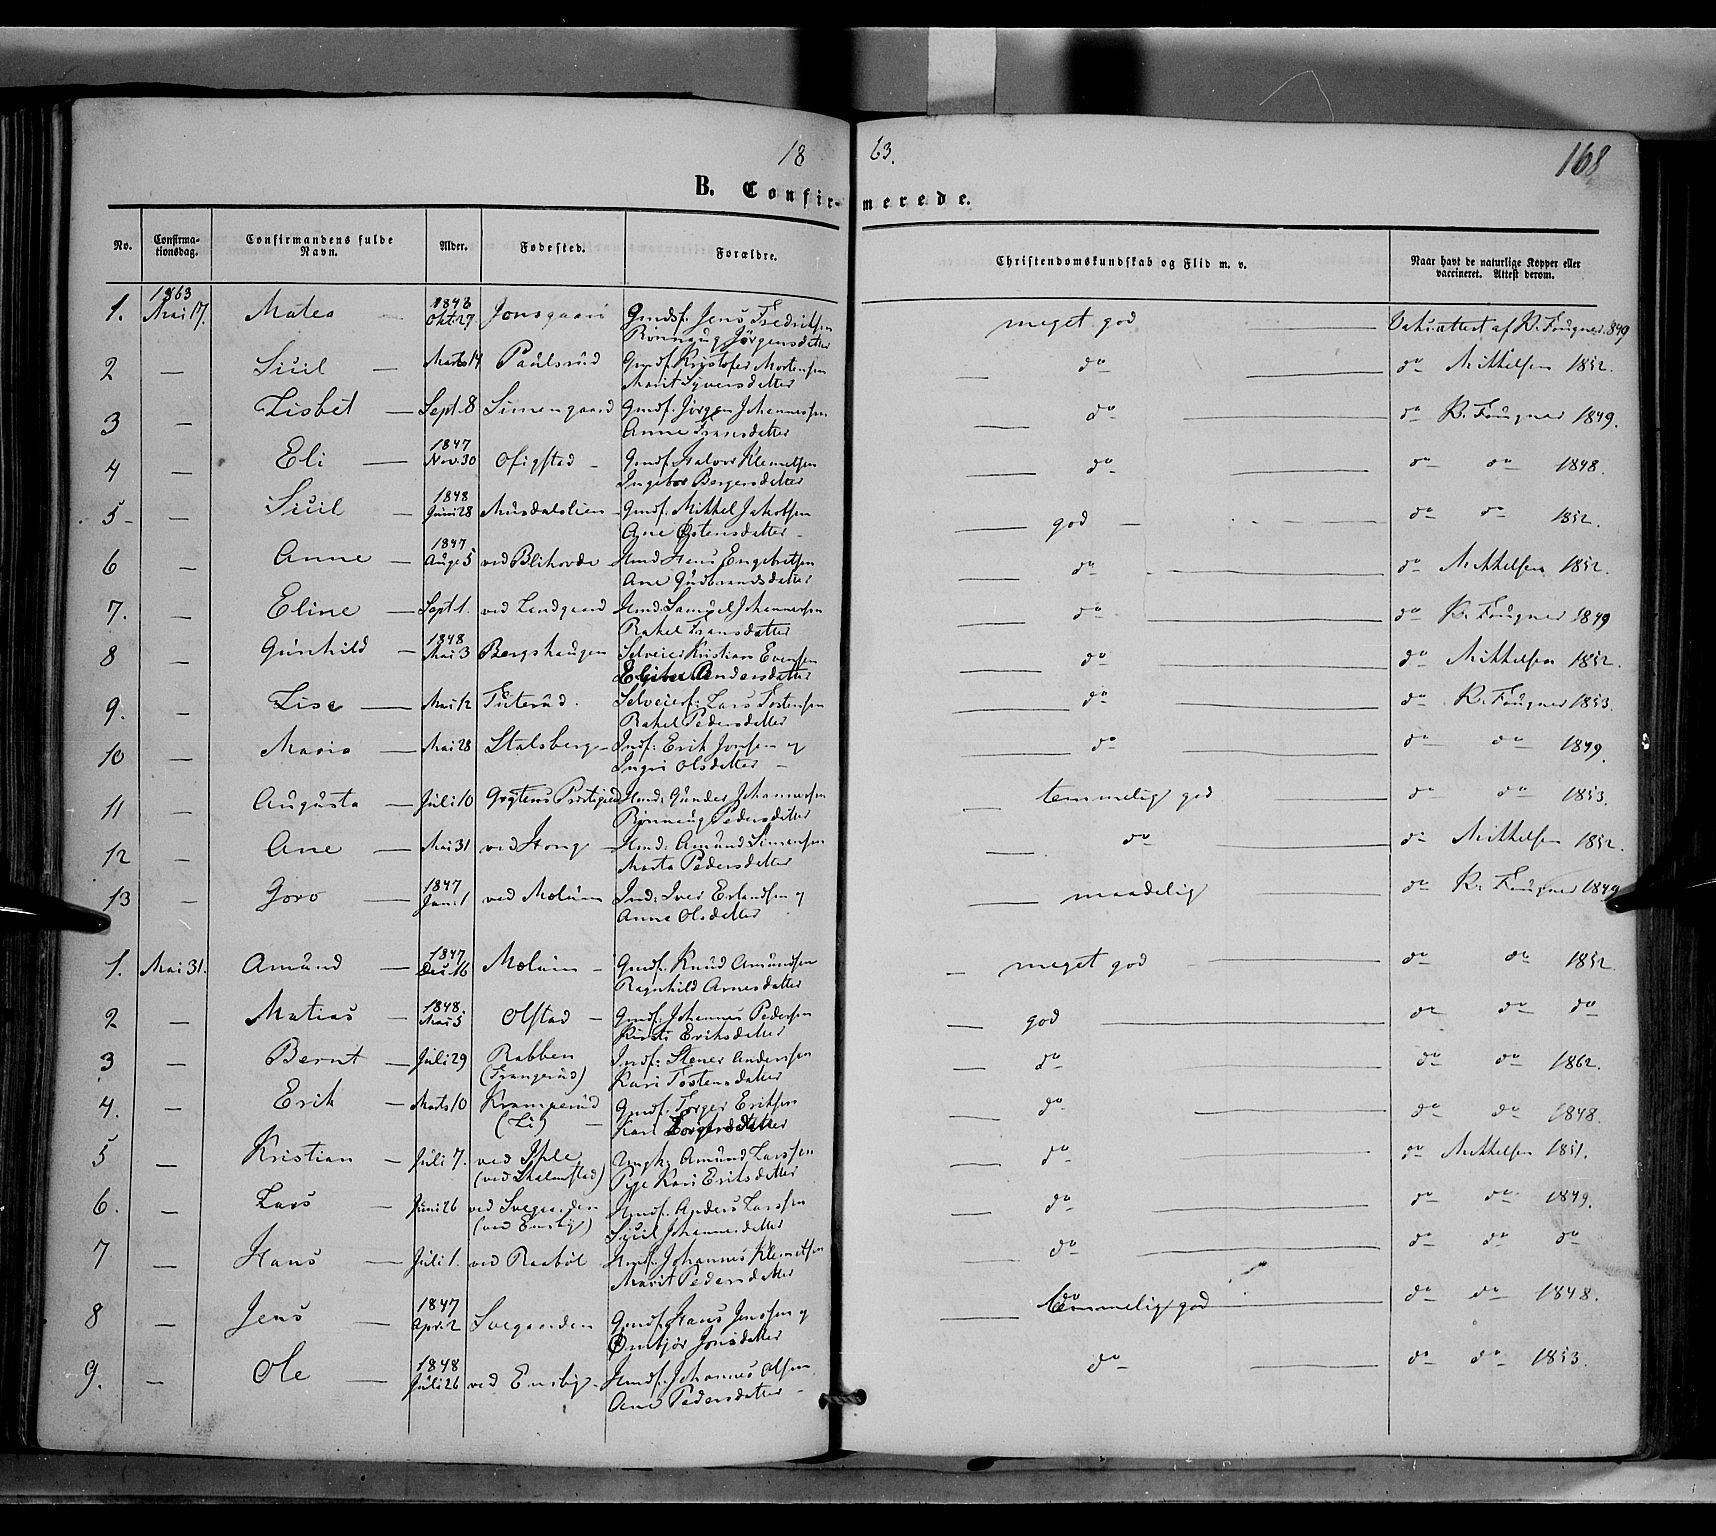 18 63. 168
B. Confirmerede.
No. Confirmationsdag. Confirmandens fulde Navn. Alder. Fødested. Forældre. Christendomskundskab og Flid m. v. Naar havt de naturlige Kopper eller vaccineret. Attest derom.
1863 1848
1. Mai 17. Matea Okt. 27 Jonsgaard Gmdsf. Jens Fredriksen meget god K. Fougner 1849
Rønnaug Jørgensdatter
2 — Sicil — Marts 14 Paulsrud Gmdf. Kristofer Mortensen do do Mikkelsen 1852.
Marit Syversdatter
3 — Lisbet — Sept. 8 Simengaard Gmdf. Jørgen Johannessen do do K. Fougner 1849.
Anne Fransdatter
1847
4 — Eli — Nov. 30 Ofigstad — Gmdf. Halvor Klemetsen do do do 1848.
Ingebor Bergersdatter
1848
5 — Sicil — Juni 28 Musdalslien — Gmdf. Mikkel Jakobsen god do do 1852.
Ane Østensdatter —
1847
6 — Anne — Aug. 5 ved Blikovde Hmd Hans Engebretsen do do Mikkelsen 1852.
Ane Gudbrandsdatter
7. Eline — Sept. 1. ved Lendgaard Hmd. Samuel Johannessen do do K. Fougner 1849
Rakel Fransdatter
1848
8 — Gunhild — Mai 3 Bergshaugen Selveier Kristian Evensen do do Mikkelsen 1852.
Andersdatter
9. — Lise — Mai 12 Selveierf. Lars Tostensen do do K. Fougner 1853.
Rakel Pedersdatter
10 — Maria — Mai 28 Stalsberg — Indf. Erik Jonsen og do do do 1849.
Ingri Olsdatter —
11 — Augusta — Juli 10 Hmd. Gunder Johannessen temmelig god do do 1853.
Rønnaug Pedersdatter
12 — Ane — Mai 31 ved Hong — Hmd. Amund Simensen do do Mikkelsen 1852.
Marta Pedersdatter
1847
13 — Goro Jan. 1 ved Molum Ind. Iver Erlandsen og maadelig do K. Fougner 1849
Anne Olsdatter
1847
1. Mai 31. Amund — Dec. 16 Molum — Gmdf. Knud Amundsen meget god do do 1852
Ragnhild Arnesdatter
1848
2 — Matias — Mai 5 Olstad — Gmdf. Johannes Pedersen god do do do
Kirsti Eriksdatter
3 — Bernt — Juli 29 Rabben Indf. Stener Andersen do do do 1862.
(Frangerud) Kari Tostensdatter
4. — Erik — Marts 10 Kramperud Gmdf. Torger Eriksen do do do 1848.
(Li) — Kari Torgersdatter
5 — Kristian — Juli 7. ved Ihle Ungk. Amund Larssen do do Mikkelsen 1851.
(ved Skalmstad) Pige Kari Eriksdatter
6. — Lars — Juni 26 ved Svegaarden Hmdf. Anders Larssen do do do 1849.
(ved Ensby) Sicil Johannesdatter
7 — Hans — Juli 1. ved Raabøl Hmdf. Johannes Klemetsen do do do do
Marit Pedersdatter
1847
8 — Jens — April 2 Svegaarden Gmdf. Hans Jenssen og temmelig god do do 1848.
Ombjør Jonsdatter
1848
9. — Ole — Juli 26 ved Ensby — Hmdf. Johannes Olsen do do do 1853.
Ane Pedersdatter —